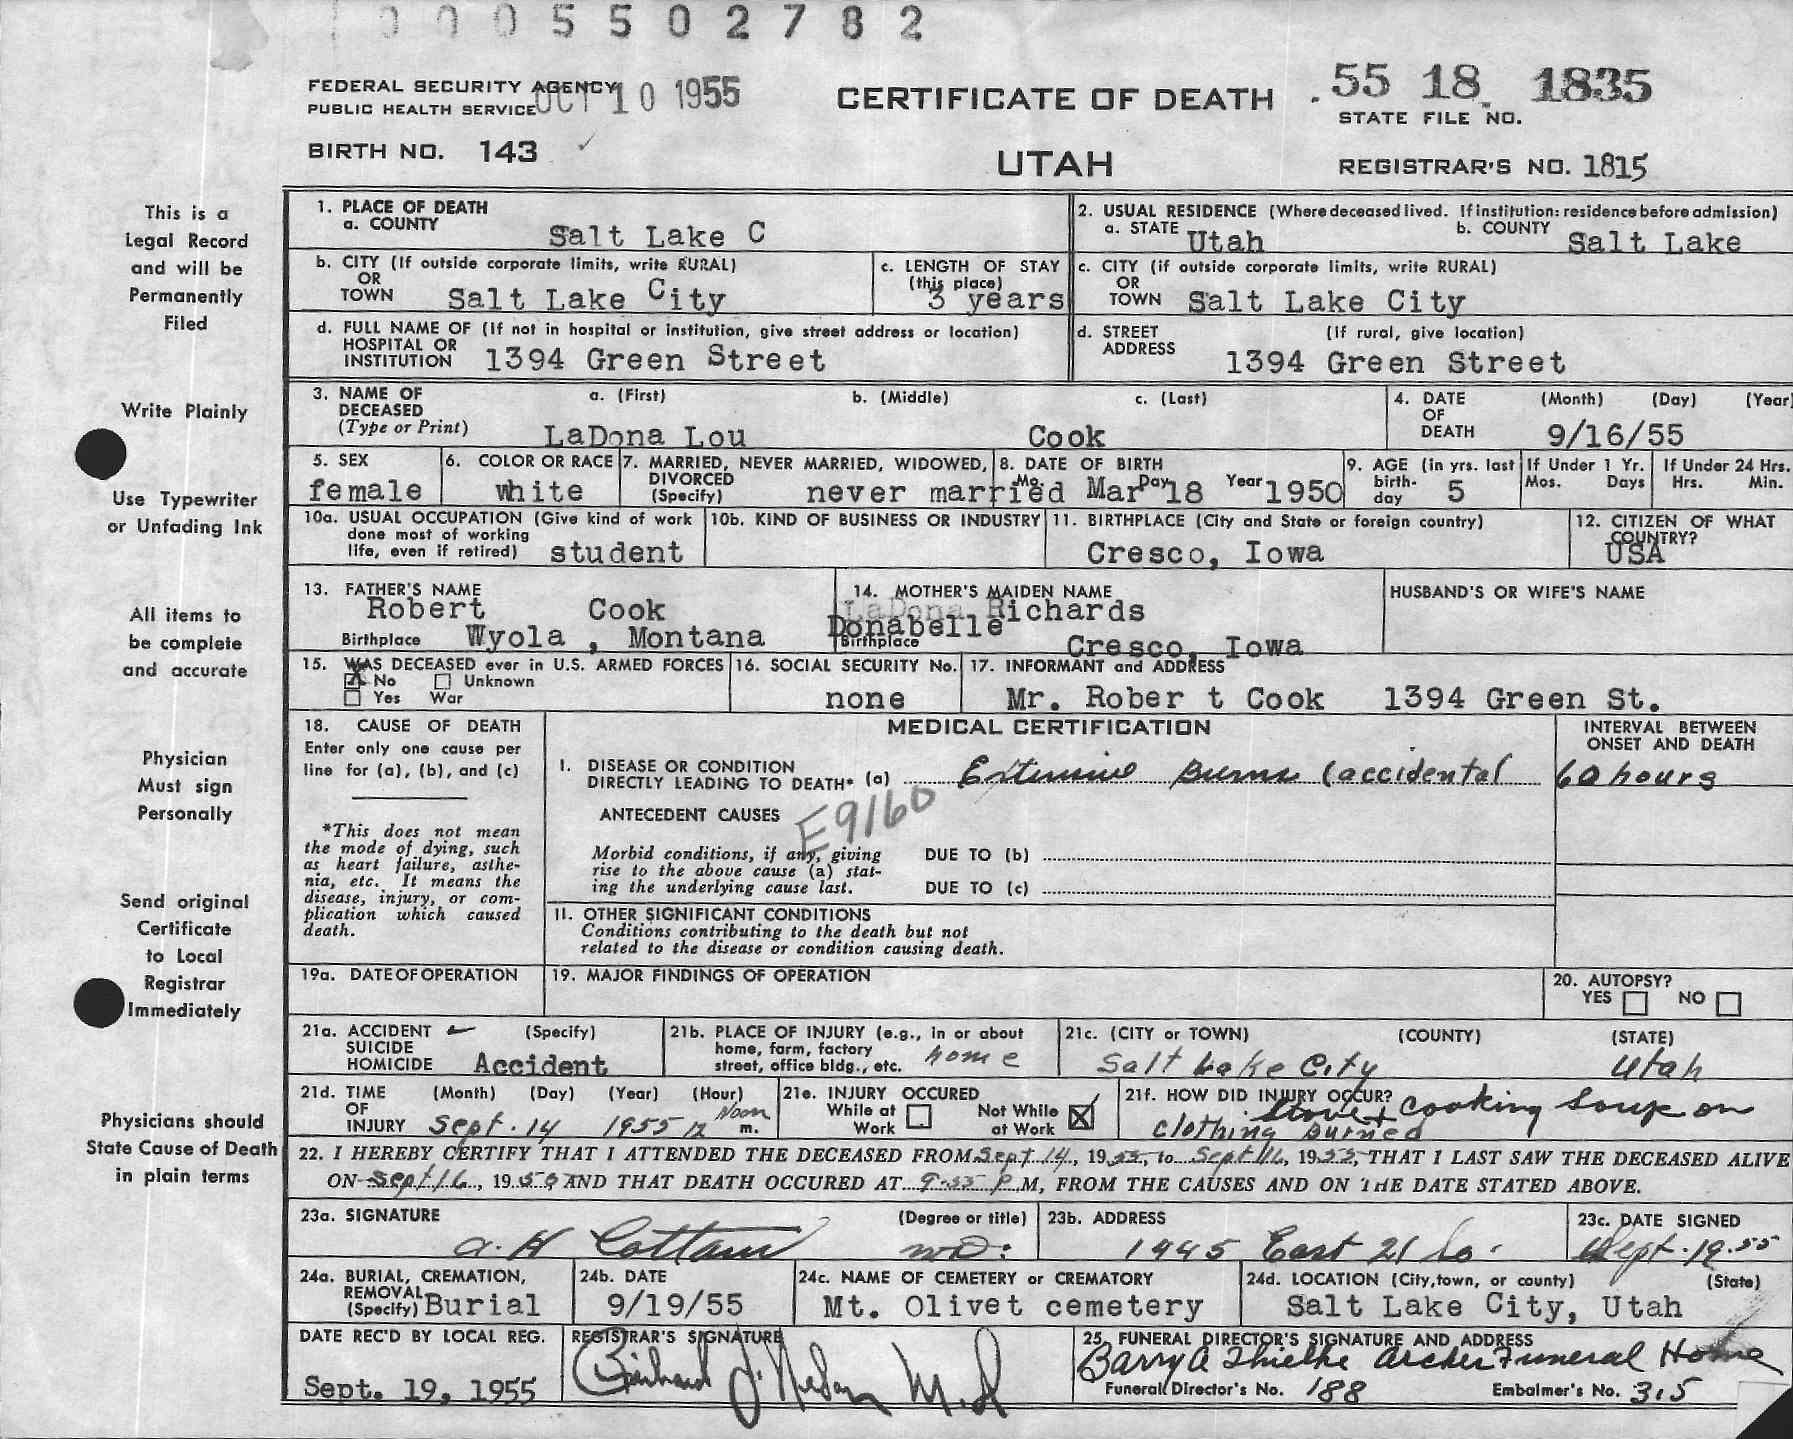 0005502782
FEDERAL SECURITY AGENCY
PUBLIC HEALTH SERVICE
OCT 10 1955
CERTIFICATE OF DEATH
55 18 1835
STATE FILE NO.
BIRTH NO. 143
UTAH
REGISTRAR'S NO. 1815
This is a
Legal Record
and will be
Permanently
Filed
Write Plainly
Use Typewriter
or Unfading Ink
All items to
be complete
and accurate
Physician
Must sign
Personally
Send original
Certificate
to Local
Registrar
Immediately
Physicians should
State Cause of Death
in plain terms
1. PLACE OF DEATH
a. COUNTY Salt Lake C
2. USUAL RESIDENCE (Where deceased lived. If institution: residence before admission)
a. STATE Utah b. COUNTY Salt Lake
b. CITY (If outside corporate limits, write RURAL)
OR
TOWN Salt Lake City
c. LENGTH OF STAY
(this place)
3 years
c. CITY (if outside corporate limits, write RURAL)
OR
TOWN Salt Lake City
d. FULL NAME OF (If not in hospital or institution, give street address or location)
HOSPITAL OR
INSTITUTION 1394 Green Street
d. STREET (If rural, give location)
ADDRESS 1394 Green Street
3. NAME OF a. (First) b. (Middle) c. (Last)
DECEASED
(Type or Print) LaDona Lou Cook
4. DATE (Month) (Day) (Year)
OF
DEATH 9/16/55
5. SEX
female
6. COLOR OR RACE
white
7. MARRIED, NEVER MARRIED, WIDOWED,
DIVORCED
(Specify) never married
8. DATE OF BIRTH
Mo. Mar Day 18 Year 1950
9. AGE (in yrs. last
birth-
day 5
If Under 1 Yr.
Mos. Days
If Under 24 Hrs.
Hrs. Min.
10a. USUAL OCCUPATION (Give kind of work
done most of working
life, even if retired) student
10b. KIND OF BUSINESS OR INDUSTRY
11. BIRTHPLACE (City and State or foreign country)
Cresco, Iowa
12. CITIZEN OF WHAT
COUNTRY?
USA
13. FATHER'S NAME
Robert Cook
Birthplace Wyola , Montana
14. MOTHER'S MAIDEN NAME
LaDona Richards
Donabelle
Birthplace Cresco, Iowa
HUSBAND'S OR WIFE'S NAME
15. WAS DECEASED ever in U.S. ARMED FORCES
X No Unknown
Yes War
16. SOCIAL SECURITY No.
none
17. INFORMANT and ADDRESS
Mr. Rober t Cook 1394 Green St.
18. CAUSE OF DEATH
Enter only one cause per
line for (a), (b), and (c)
*This does not mean
the mode of dying, such
as heart failure, asthe-
nia, etc. It means the
disease, injury, or com-
plication which caused
death.
MEDICAL CERTIFICATION
INTERVAL BETWEEN
ONSET AND DEATH
I. DISEASE OR CONDITION
DIRECTLY LEADING TO DEATH* (a) Extensive Burns (accidental 60 hours
ANTECEDENT CAUSES
E9160
Morbid conditions, if any, giving
rise to the above cause (a) stat-
ing the underlying cause last.
DUE TO (b)
DUE TO (c)
II. OTHER SIGNIFICANT CONDITIONS
Conditions contributing to the death but not
related to the disease or condition causing death.
19a. DATE OF OPERATION
19. MAJOR FINDINGS OF OPERATION
20. AUTOPSY?
YES NO
21a. ACCIDENT (Specify)
SUICIDE
HOMICIDE Accident
21b. PLACE OF INJURY (e.g., in or about
home, farm, factory
street, office bldg., etc. home
21c. (CITY or TOWN) (COUNTY) (STATE)
Salt Lake City Utah
21d. TIME (Month) (Day) (Year) (Hour)
OF
INJURY Sept. 14 1955 12 Noon m.
21e. INJURY OCCURED
While at
Work
Not While
at Work X
21f. HOW DID INJURY OCCUR?
cooking soup on
stove & clothing burned
22. I HEREBY CERTIFY THAT I ATTENDED THE DECEASED FROM Sept 14, 1955, to Sept 16, 1955, THAT I LAST SAW THE DECEASED ALIVE
ON Sept 16, 1955 AND THAT DEATH OCCURED AT 9:55 P.M, FROM THE CAUSES AND ON THE DATE STATED ABOVE.
23a. SIGNATURE (Degree or title)
A. H Cottam M.D.
23b. ADDRESS
1945 East 21 So.
23c. DATE SIGNED
Sept. 19.55
24a. BURIAL, CREMATION,
REMOVAL
(Specify) Burial
24b. DATE
9/19/55
24c. NAME OF CEMETERY or CREMATORY
Mt. Olivet cemetery
24d. LOCATION (City, town, or county) (State)
Salt Lake City, Utah
DATE REC'D BY LOCAL REG.
Sept. 19, 1955
REGISTRAR'S SIGNATURE
Nelson M.D
25. FUNERAL DIRECTOR'S SIGNATURE AND ADDRESS
Barry A Thielke Archer Funeral Home
Funeral Director's No. 188 Embalmer's No. 315